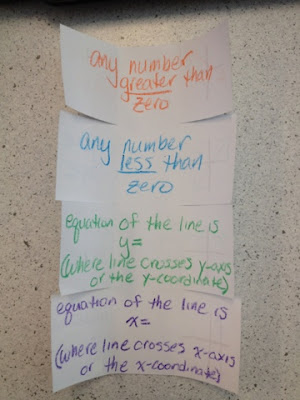 any number
greater than
zero
any number
less than
zero
equation of the line is
y=
(where line crosses y-axis
or the y-coordinate)
equation of the line is
x=
(where line crosses x-axis
or the x-coordinate)